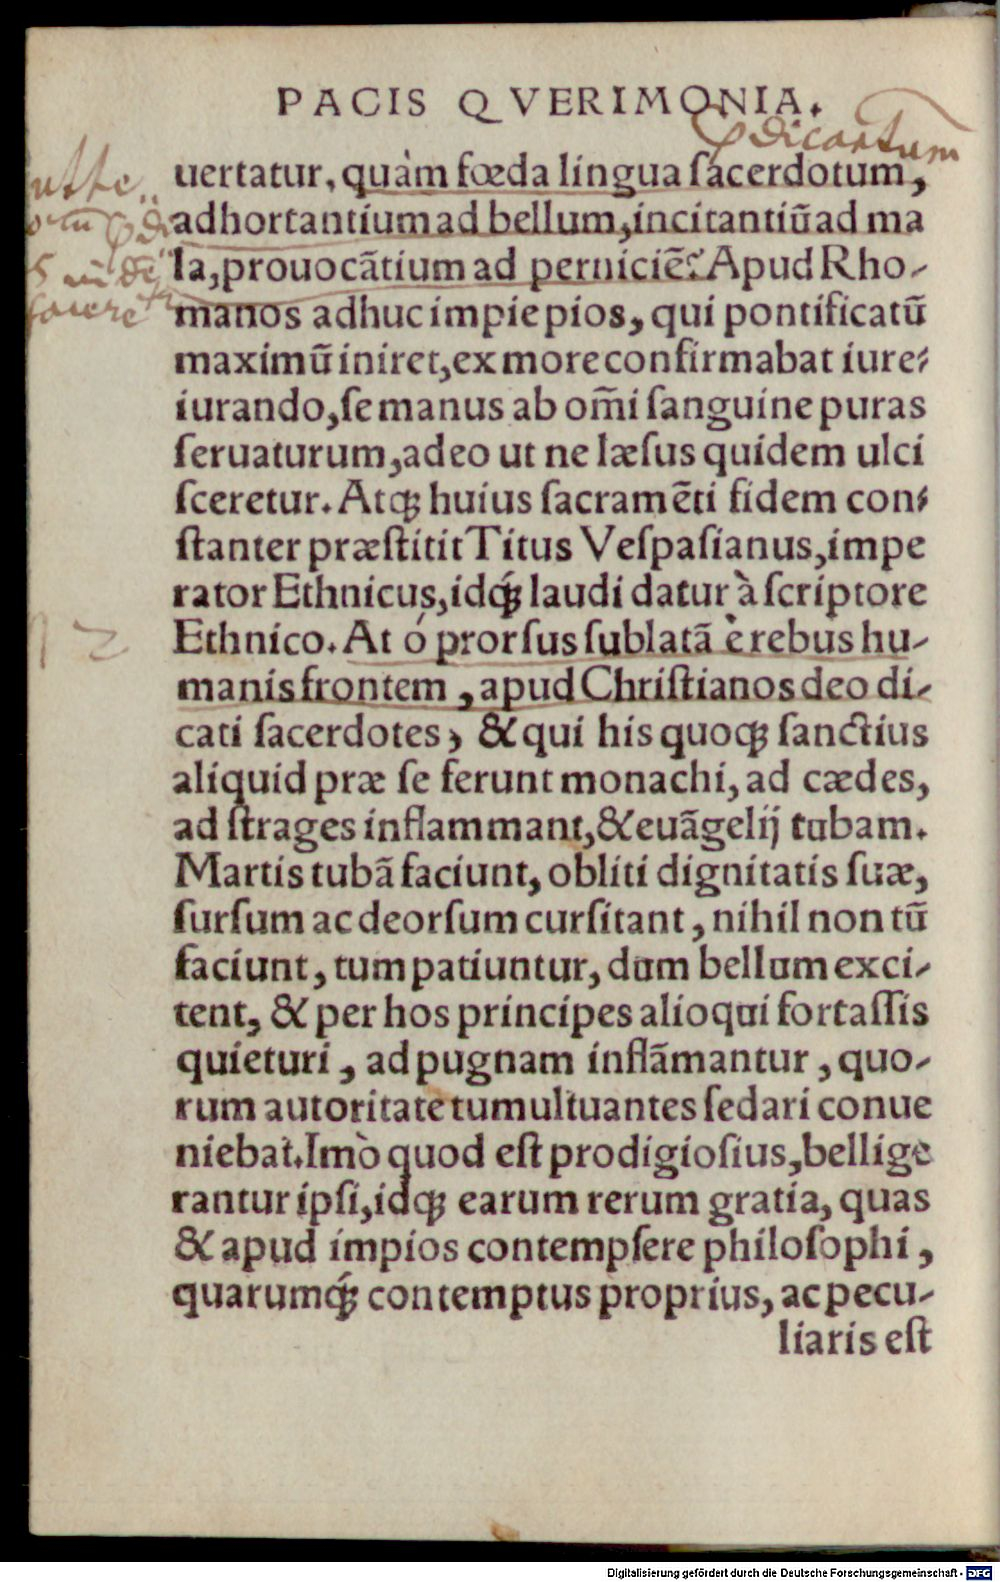 PACIS QVERIMONIA.
uertatur, quàm fœda lingua sacerdotum,
adhortantium ad bellum, incitantiũ ad ma
la, prouocãtium ad perniciẽ? Apud Rho-
manos adhuc impie pios, qui pontificatũ
maximũ iniret, ex more confirmabat iure-
iurando, se manus ab om̃i sanguine puras
seruaturum, adeo ut ne læsus quidem ulci
sceretur. Atq; huius sacramẽti fidem con-
stanter præstitit Titus Vespasianus, impe
rator Ethnicus, idq́; laudi datur à scriptore
Ethnico. At ó prorsus sublatã è rebus hu-
manis frontem, apud Christianos deo di-
cati sacerdotes, & qui his quoq; sanctius
aliquid præ se ferunt monachi, ad cædes,
ad strages inflammant, & euãgelij tubam.
Martis tubã faciunt, obliti dignitatis suæ,
sursum ac deorsum cursitant, nihil non tũ
faciunt, tum patiuntur, dum bellum exci-
tent, & per hos principes alioqui fortassis
quieturi, ad pugnam inflãmantur, quo-
rum autoritate tumultuantes sedari conue
niebat. Imò quod est prodigiosius, bellige
rantur ipsi, idq; earum rerum gratia, quas
& apud impios contempsere philosophi,
quarumq́; contemptus proprius, ac pecu-
liaris est
Digitalisierung gefördert durch die Deutsche Forschungsgemeinschaft - DFG